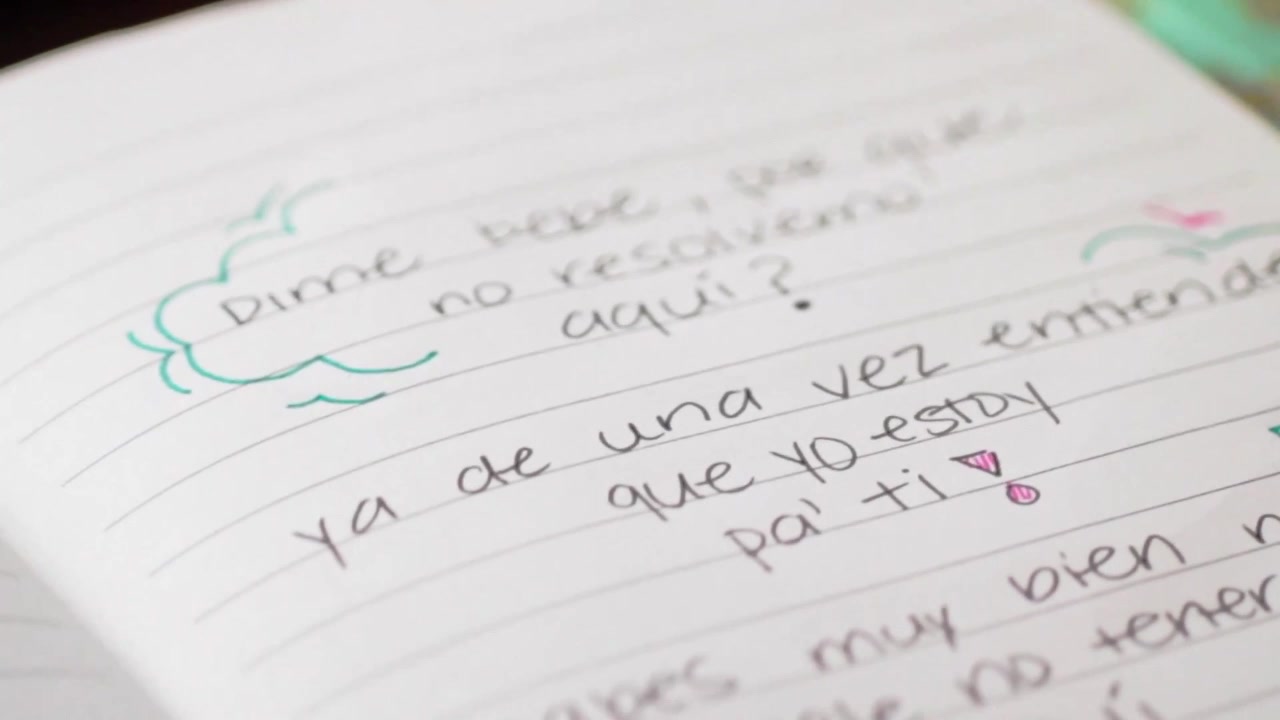 Dime bebe, por que
no resolvemo'
aquí?
ya de una vez entiende
que yo estoy
pa' ti!
muy bien
no tener